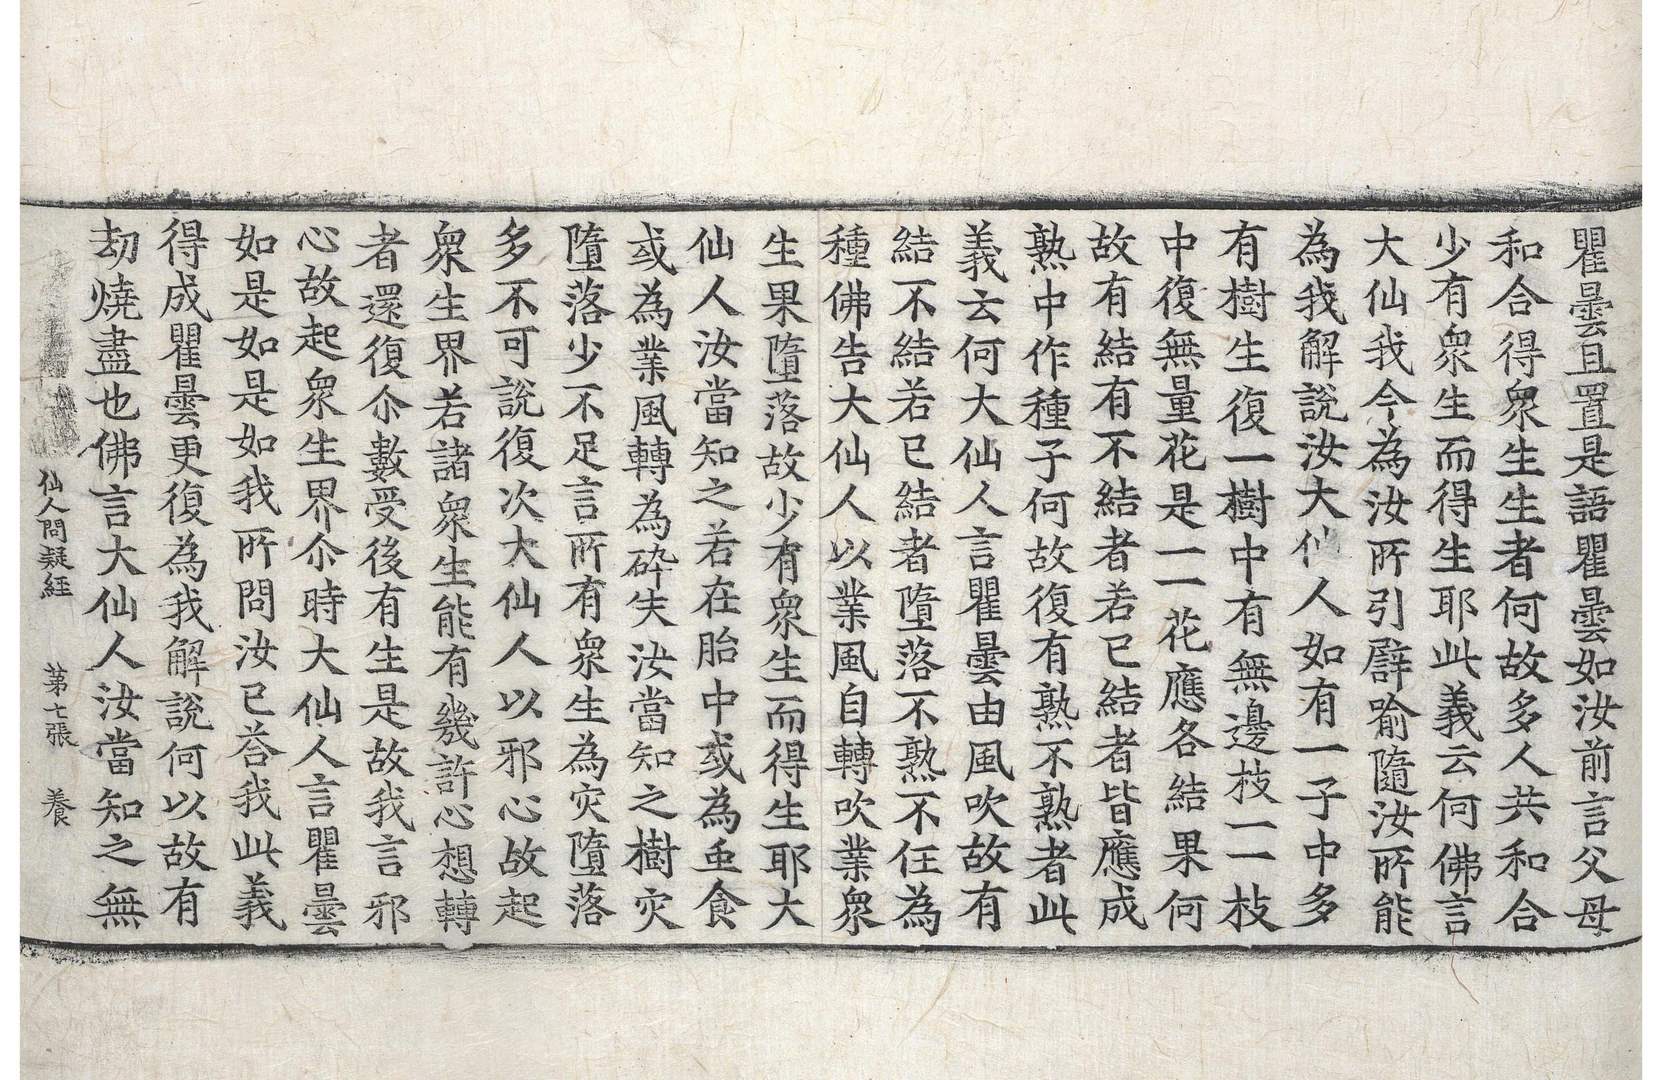 瞿曇且置是語瞿曇如汝前言父母
和合得衆生生者何故多人共和合
少有衆生而得生耶此義云何佛言
大仙我今為汝所引譬喻隨汝所能
為我解說汝大仙人如有一子中多
有樹生復一樹中有無邊枝一一枝
中復無量花是一一花應各結果何
故有結有不結者若已結者皆應成
熟中作種子何故復有熟不熟者此
義云何大仙人言瞿曇由風吹故有
結不結若已結者墮落不熟不任為
種佛告大仙人以業風自轉吹業衆
生果墮落故少有衆生而得生耶大
仙人汝當知之若在胎中或為虫食
或為業風轉為碎失汝當知之樹灾
墮落少不足言所有衆生為灾墮落
多不可說復次大仙人以邪心故起
衆生界若諸衆生能有幾許心想轉
者還復尒數受後有生是故我言邪
心故起衆生界尒時大仙人言瞿曇
如是如是如我所問汝已荅我此義
得成瞿曇更復為我解說何以故有
劫燒盡也佛言大仙人汝當知之無
仙人問疑経 第七張 養